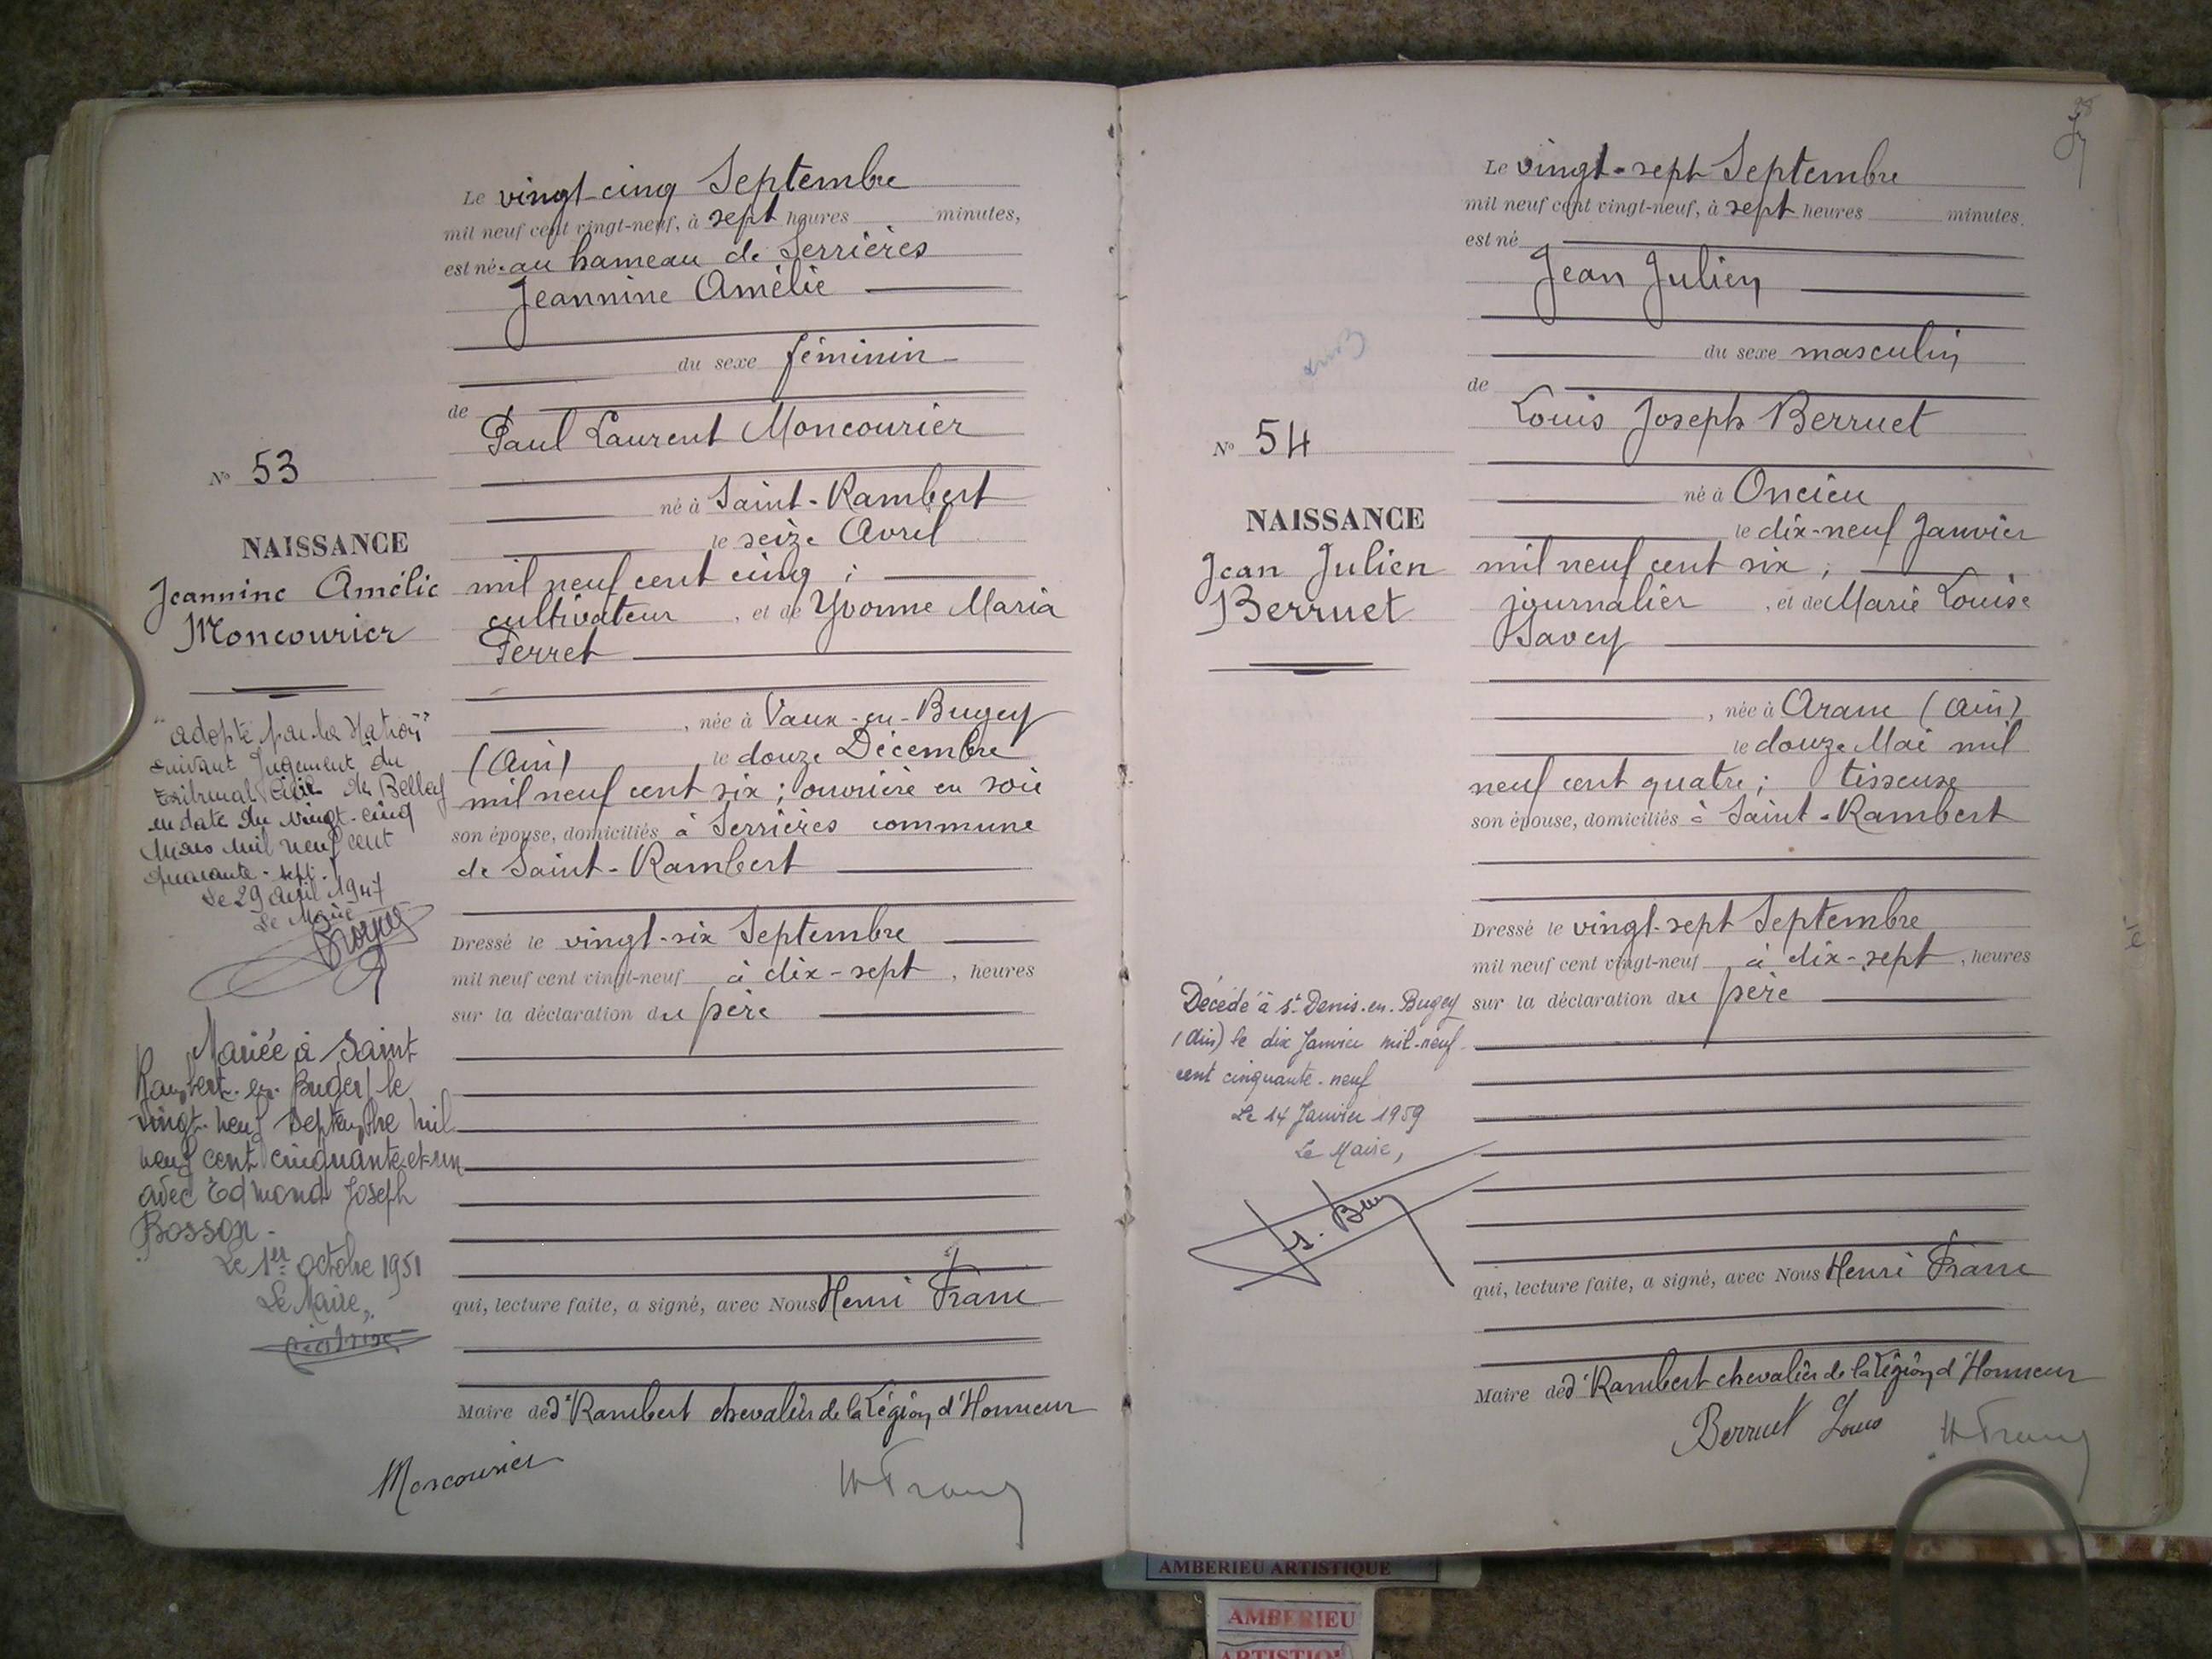 Le vingt-cinq Septembre
mil neuf cent vingt-neuf, à sept heures minutes,
est née au hameau de Serrières
Jeannine Amélie
du sexe féminin
de
Paul Laurent Moncourier
né à Saint-Rambert
le seize Avril
mil neuf cent cinq ;
cultivateur, et de Yvonne Maria
Perret
, née à Vaux-en-Bugey
(Ain) le douze Décembre
mil neuf cent six ; ouvrière en soie
son épouse, domiciliés à Serrières commune
de Saint-Rambert
Dressé le vingt-six Septembre
mil neuf cent vingt-neuf à dix-sept, heures
sur la déclaration du père
qui, lecture faite, a signé, avec Nous Henri Franc
Maire de St Rambert chevalier de la Légion d'Honneur
Moncourier
H Franc
No 53
NAISSANCE
Jeannine Amélie
Moncourier
"adopté par la Nation"
suivant Jugement du
tribunal Civil de Belley
en date du vingt-cinq
Mars mil neuf cent
quarante-sept.
Le 29 avril 1947
Le Maire
Mariée à Saint
Rambert-en-Bugey le
vingt-neuf Septembre mil
neuf cent cinquante-et-un
avec Edmond Joseph
Bosson.
Le 1er octobre 1951
Le Maire,
Le vingt-sept Septembre
mil neuf cent vingt-neuf, à sept heures minutes.
est né
Jean Julien
du sexe masculin
de
Louis Joseph Berruet
né à Oncieu
le dix-neuf Janvier
mil neuf cent six ;
journalier, et de Marie Louise
Savey
, née à Aranc (Ain)
le douze Mai mil
neuf cent quatre ; tisseuse
son épouse, domiciliés à Saint-Rambert
Dressé le vingt-sept Septembre
mil neuf cent vingt-neuf à dix-sept, heures
sur la déclaration du père
qui, lecture faite, a signé, avec Nous Henri Franc
Maire de St Rambert chevalier de la Légion d'Honneur
Berruet Louis
H Franc
No 54
NAISSANCE
Jean Julien
Berruet
Décédé à St-Denis-en-Bugey
(Ain) le dix Janvier mil-neuf
cent cinquante-neuf
Le 14 Janvier 1959
Le Maire,
AMBERIEU ARTISTIQUE
AMBERIEU